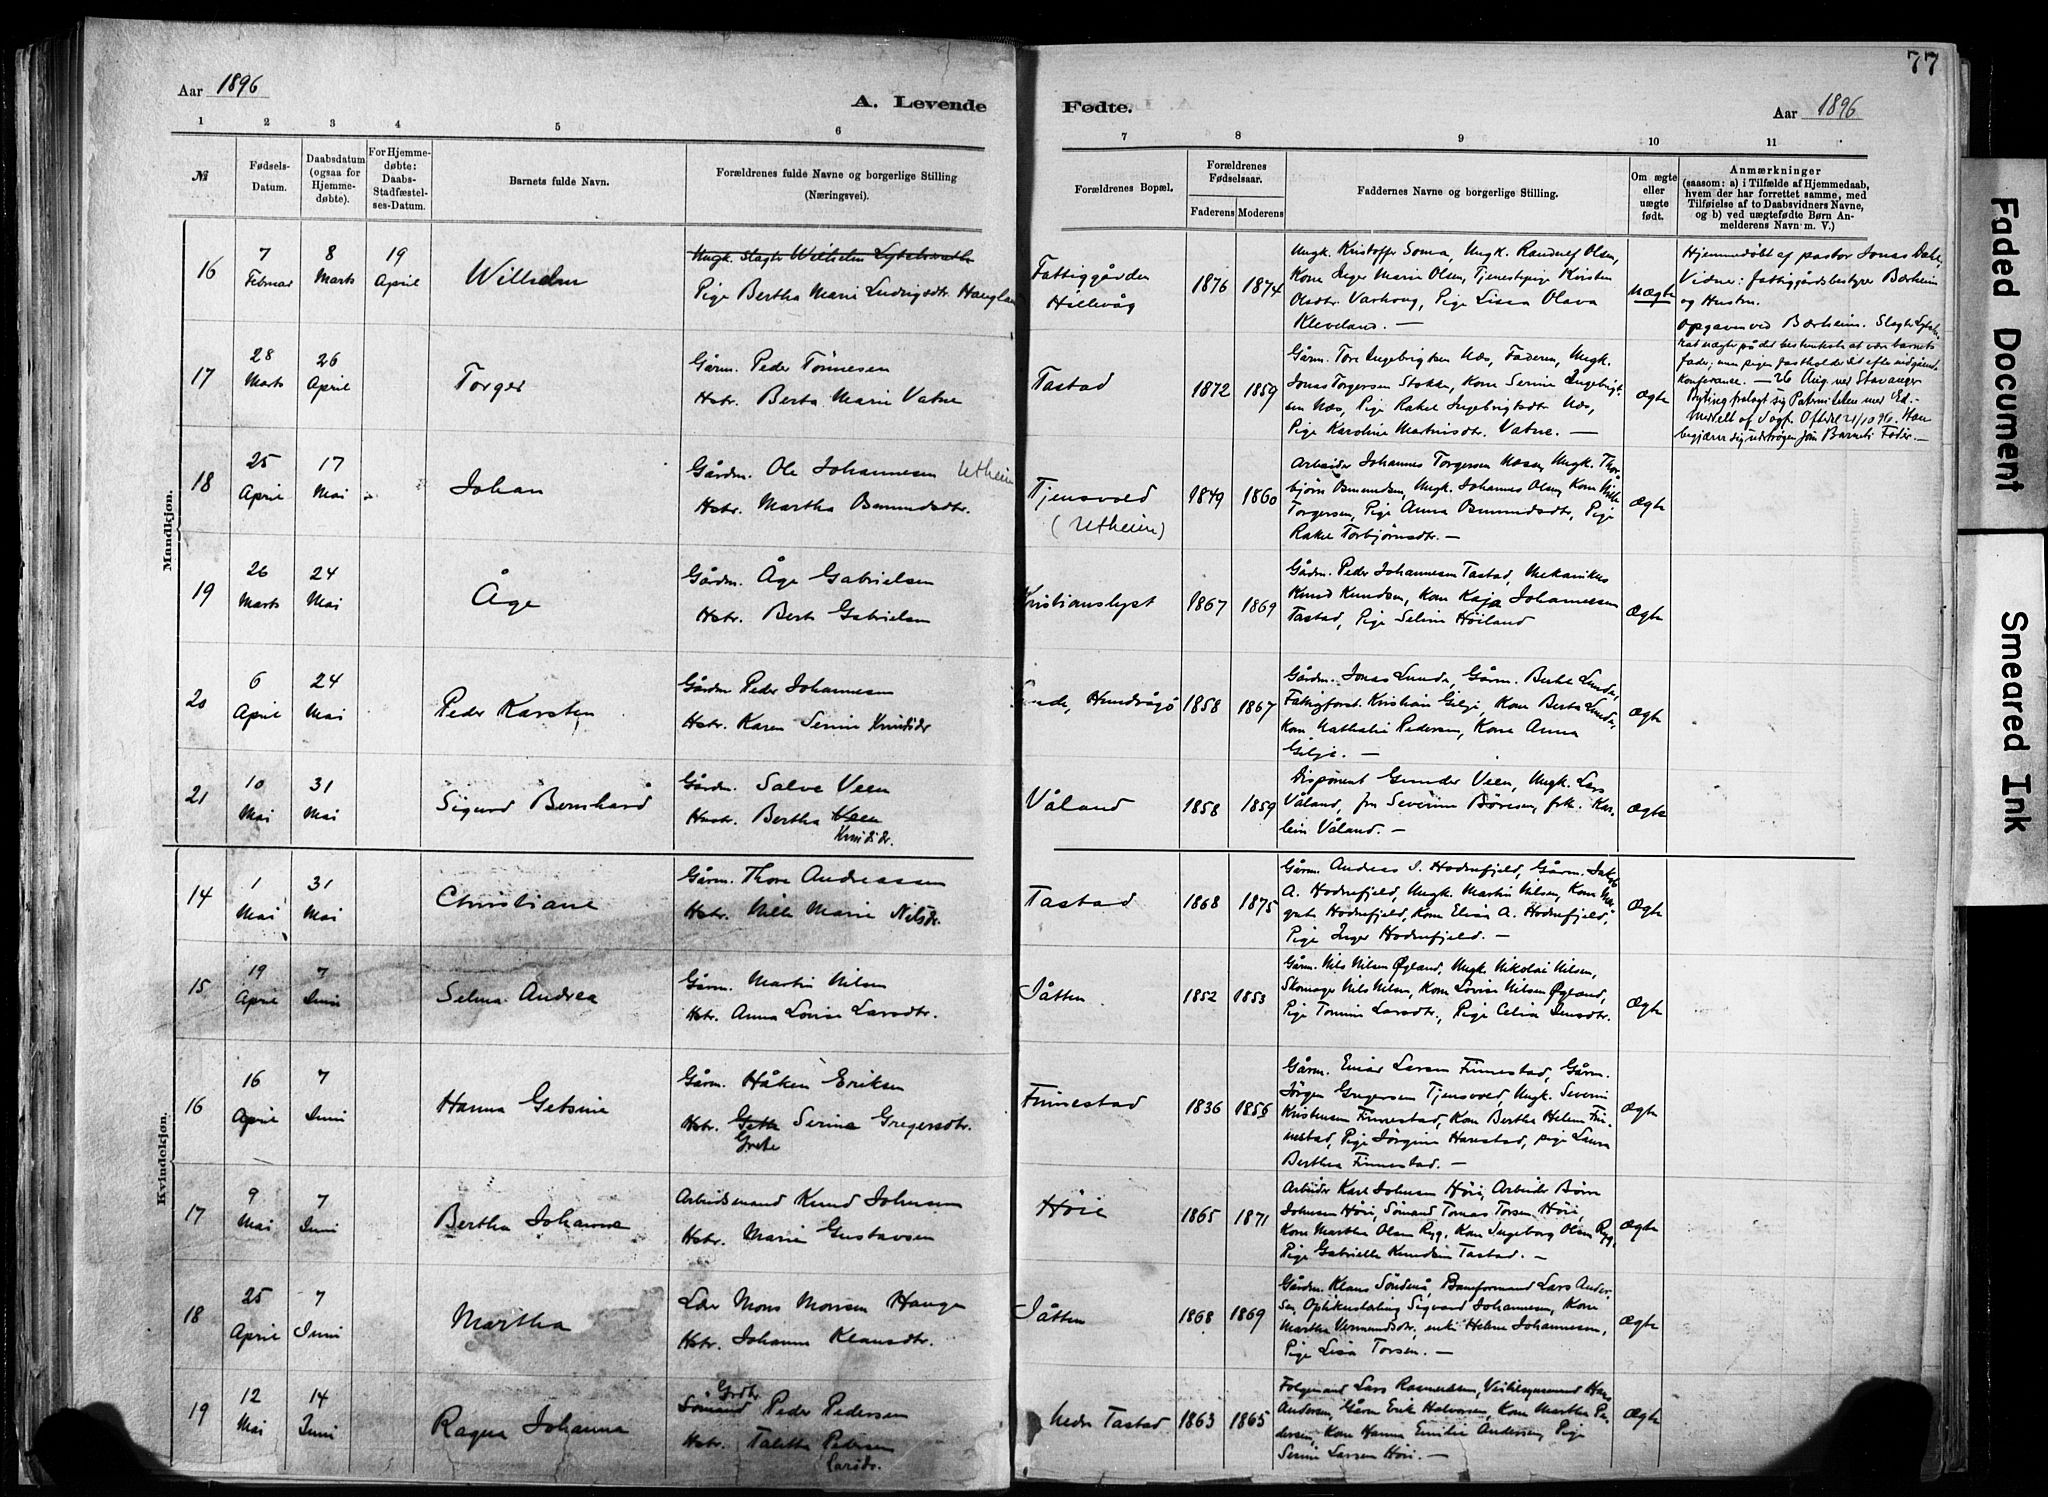 77
Aar 1896
A. Levende
Fødte.
Aar 1896
1 2 3 4 5 6 7 8 9 10 11
№
Fødsels-
Datum.
Daabsdatum
(ogsaa for
Hjemme-
døbte).
For Hjemme-
døbte:
Daabs-
Stadfæstel-
ses-Datum.
Barnets fulde Navn.
Forældrenes fulde Navne og borgerlige Stilling
(Næringsvei).
Forældrenes Bopæl.
Forældrenes
Fødselsaar.
Faderens Moderens
Faddernes Navne og borgerlige Stilling.
Om ægte
eller
uægte
født.
Anmærkninger
(saasom: a) i Tilfælde af Hjemmedaab,
hvem der har forrettet samme, med
Tilføielse af to Daabsvidners Navne,
og b) ved uægtefødte Børn An-
melderens Navn m. V.)
Mandkjøn.
16
7
Februar
8
Marts
19
April
Wilhelm
Ungk. Slagter Wilhelm
Pige Bertha Marie Ludvigsdtr. Haugland
Fattiggården
Hillevåg
1876 1874
Ungk. Kristoffer Soma, Ungk. Randulf Olsen,
Kone Inger Marie Olsen, Tjenestepige Kirsten
Olsdtr. Varhoug, Pige Lisa Olava
Kleveland. —
Uægte
Hjemmedøbt af pastor Jonas Dahl,
Vidner: fattiggårdsbestyrer Bærheim
og Hustru.
Opgaven ved Bærheim.
17
28
Marts
26
April
Torger
Gårm. Peder Tønnesen
Hstr. Berta Marie Vatne
Tastad
1872 1859
Gårm. Tore Ingebrigtsen Næs, Faderen, Ungk.
Jonas Torgersen Stokke, Kone Serine Ingebrigt-
sen Næs, Pige Rakel Ingebrigtsdtr. Næs,
Pige Karoline Martinsdtr. Vatne. —
Ægte
18
25
April
17
Mai
Johan
Gårdm. Ole Johannesen Utheim
Hstr. Martha Osmundsdtr.
Tjensvold
(Utheim)
1849 1860
Arbeider Johannes Torgersen Næsen, Ungk. Thor-
bjørn Osmundsen, Ungk. Johannes Olsen, Kone
Torgersen, Pige Anna Osmundsdtr, Pige
Rakel Torbjørnsdtr. —
Ægte
19
26
Marts
24
Mai
Åge
Gårdm. Åge Gabrielsen
Hstr. Berte Gabrielsen
Kristianslyst
1867 1869
Gårdm. Peder Johannesen Tastad, Mekanikus
Knud Knudsen, Kone Kaja Johannesen
Tastad, Pige Seline Høiland
Ægte
20
6
April
24
Mai
Peder Karsten
Gårdm Peder Johannesen
Hstr. Karen Serine Knudsdtr
Hundvågø
1858 1867
Gårdm. Jonas Lunde, Gårm. Berte Lunde,
Fattigforst. Kristian Gilje, Kone Berta Lunde,
Kone Nathalie Pedersen, Kone Anna
Gilje. —
Ægte
21
10
Mai
31
Mai
Sigurd Bernhard
Gårdm. Salve Veen
Hustr. Bertha Veen
Knudsdr.
Våland
1858 1859
Disponent Gunder Veen, Ungk. Lars
Våland, fru Severine Børesen, frk. Kar-
lein Våland. —
Ægte
Kvindekjøn.
14
1
Mai
31
Mai
Christiane
Gårm. Thore Andreassen
Hstr. Nille Marie Nilsdr.
Tastad
1868 1875
Gårm. Andreas I. Hodnefjeld, Gårm. Jakob
A. Hodnefjeld, Ungk. Martin Nilsen, Kone
Hodnefjeld, Kone Elisa A. Hodnefjeld,
Pige Inger Hodnefjeld. —
Ægte
15
19
April
7
Juni
Selma Andrea
Gårm. Martin Nilsen
Hstr. Anna Lovise Larsdtr.
Jåtten
1852 1853
Gårm. Nils Nilsen Øgland, Ungk. Nikolai Nilsen,
Skomager Nils Nilsen, Kone Lovise Nilsen Øgland,
Pige Tomine Larsdtr., Pige Celia Jensdtr.
Ægte
16
16
April
7
Juni
Hanna Getsine
Gårm. Håken Eriksen
Hstr. Gette Serine Gregersdtr.
Grete
Finnestad
1836 1856
Gårm. Einar Larsen Finnestad, Gårm.
Jörgen Gregersen Tjensvold, Ungk. Severin
Kristensen Finnestad, Kone Berthe Helene Fin-
nestad, Pige Jörgine Harestad, pige Laura
Berthea Finnestad. —
Ægte
17
9
Mai
7
Juni
Bertha Johanne
Arbeidsmand Knud Johnsen
Hstr. Marie Gustavsen
Høie
1865 1871
Arbeider Karl Johnsen Høie, Arbeider Børre
Johnsen Høie, Sømand Tomas Torsen Høie,
Kone Martha Olsen Rygg, Kone Ingeborg Olsen Rygg,
Pige Gabrielle Knudsen Tastad. —
Ægte
18
25
April
7
Juni
Martha
Lærer Mons Monsen Hauge
Hstr. Johanne Klausdtr.
Jåtten
1868 1869
Gårdm. Klaus Söndenå, Baneformand Lars Ander-
sen, Sigvard Johannesen, Kone
Martha Vermundsdtr, enke Helene Johannesen,
Pige Lisa Torsen. —
Ægte
19
12
Mai
14
Juni
Ragna Johanna
Grdbr.
Sømand Peder Pedersen
Hstr. Talette Petersen
Larsdr.
Nedre Tastad
1863 1865
Lars Rasmussen, Hans
Andersen, Gårm Erik Halvorsen, Kone Martha Pe-
dersen, Kone Hanna Emilie Andersen, Pige
Serine Larsen Høie. —
Ægte
Faded Document
Smeared Ink